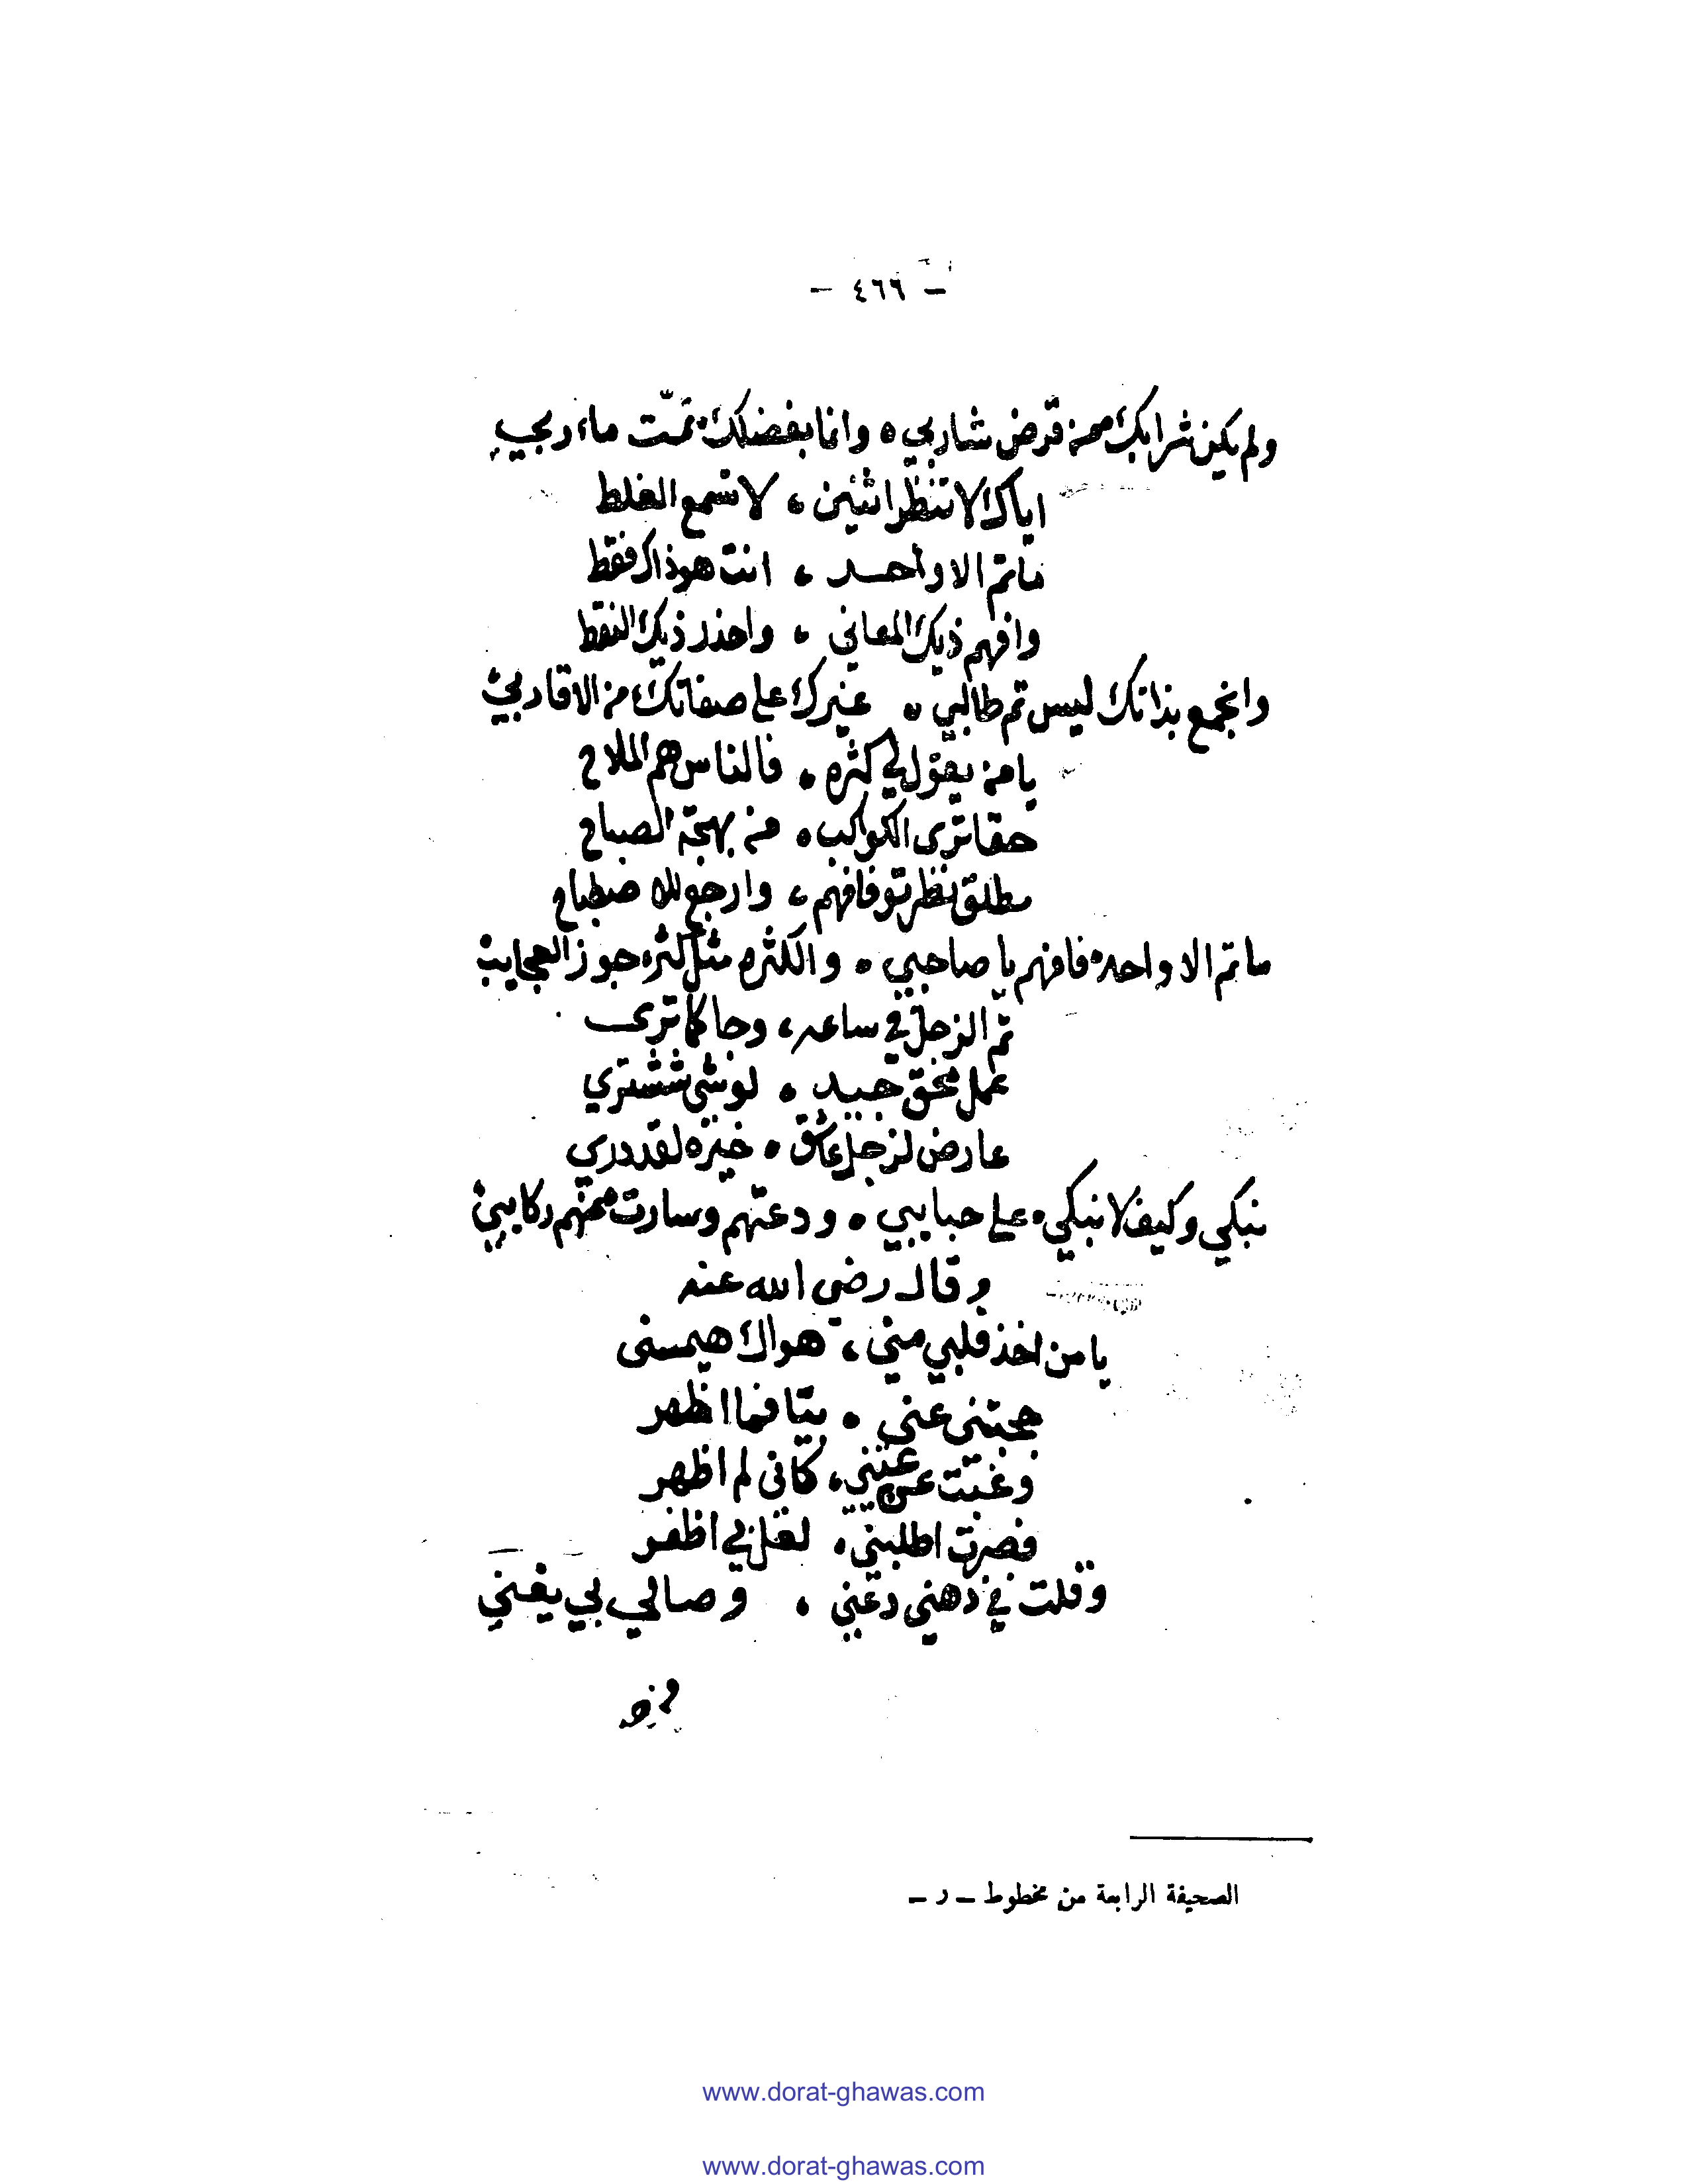 - ٤٦٦ -
ولم يكن شرابك ممن قرض شاربي ٥ وانا بفضلك تمّت مآربي
اياك لا تنظر اثنين ، لا تسمع الغلط
ماتم الا واحد ، انت هو ذاك فقط
وافهم ذيك المعاني ، واحذر ذيك النقط
وانجمع بذاتك ليس ثم طالبي ، غيرك على صفاتك من الاقاربي
يا من يقول لي كثره ، فالناس هم الملاح
حقا ترى الكواكب ٥ من بهجة الصباح
مطلق نظرتو فافهم ، وارجع للاصطباح
ماتم الا واحده فافهم يا صاحبي ٥ والكثره مثل كثره جوز العجايب
تم الزجل في ساعه ، وجا كما ترى
عمل محقق جيد ٥ لوشي ششتري
عارض لزجل عاشق ٥ خيره لقد دري
نبكي وكيف لا نبكي على حبايبي ٥ ودعتهم وسارت عنهم ركايبي
وقال رضى الله عنه
يا من اخذ قلبي مني ، هواك هيمني
حجبتني عني ٥ بتا فما اظهر
وغبت عن عيني ، كاني لم اظهر
فصرت اطلبني ، لعل بي اظفر
وقلت في ذهني دعني ، وصالي بي يغني
الصحيفة الرابعة من مخطوط - ر -
www.dorat-ghawas.com
www.dorat-ghawas.com